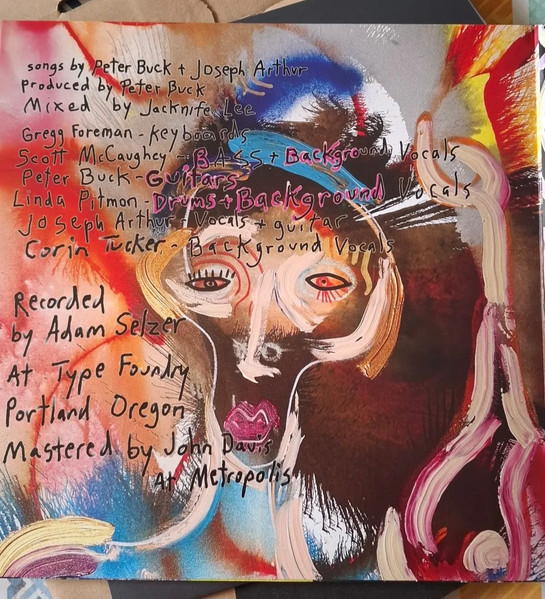 songs by Peter Buck + Joseph Arthur
Produced by Peter Buck
Mixed by Jacknife Lee
Gregg Foreman - Keyboards
Scott McCaughey - BASS + Background Vocals
Peter Buck - Guitars
Linda Pitmon - Drums + Background Vocals
Joseph Arthur - Vocals + guitar
Corin Tucker - Background Vocals
Recorded
by Adam Selzer
At Type Foundry
Portland Oregon
Mastered by John Davis
At Metropolis